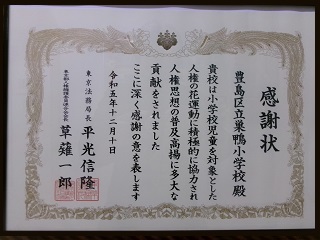 感謝状
豊島区立巣鴨小学校殿
貴校は小学校児童を対象とした
人権の花運動に積極的に協力され
人権思想の普及高揚に多大な
貢献をされました
ここに深く感謝の意を表します
令和五年十二月十日
東京法務局長
平光信隆
草薙一郎